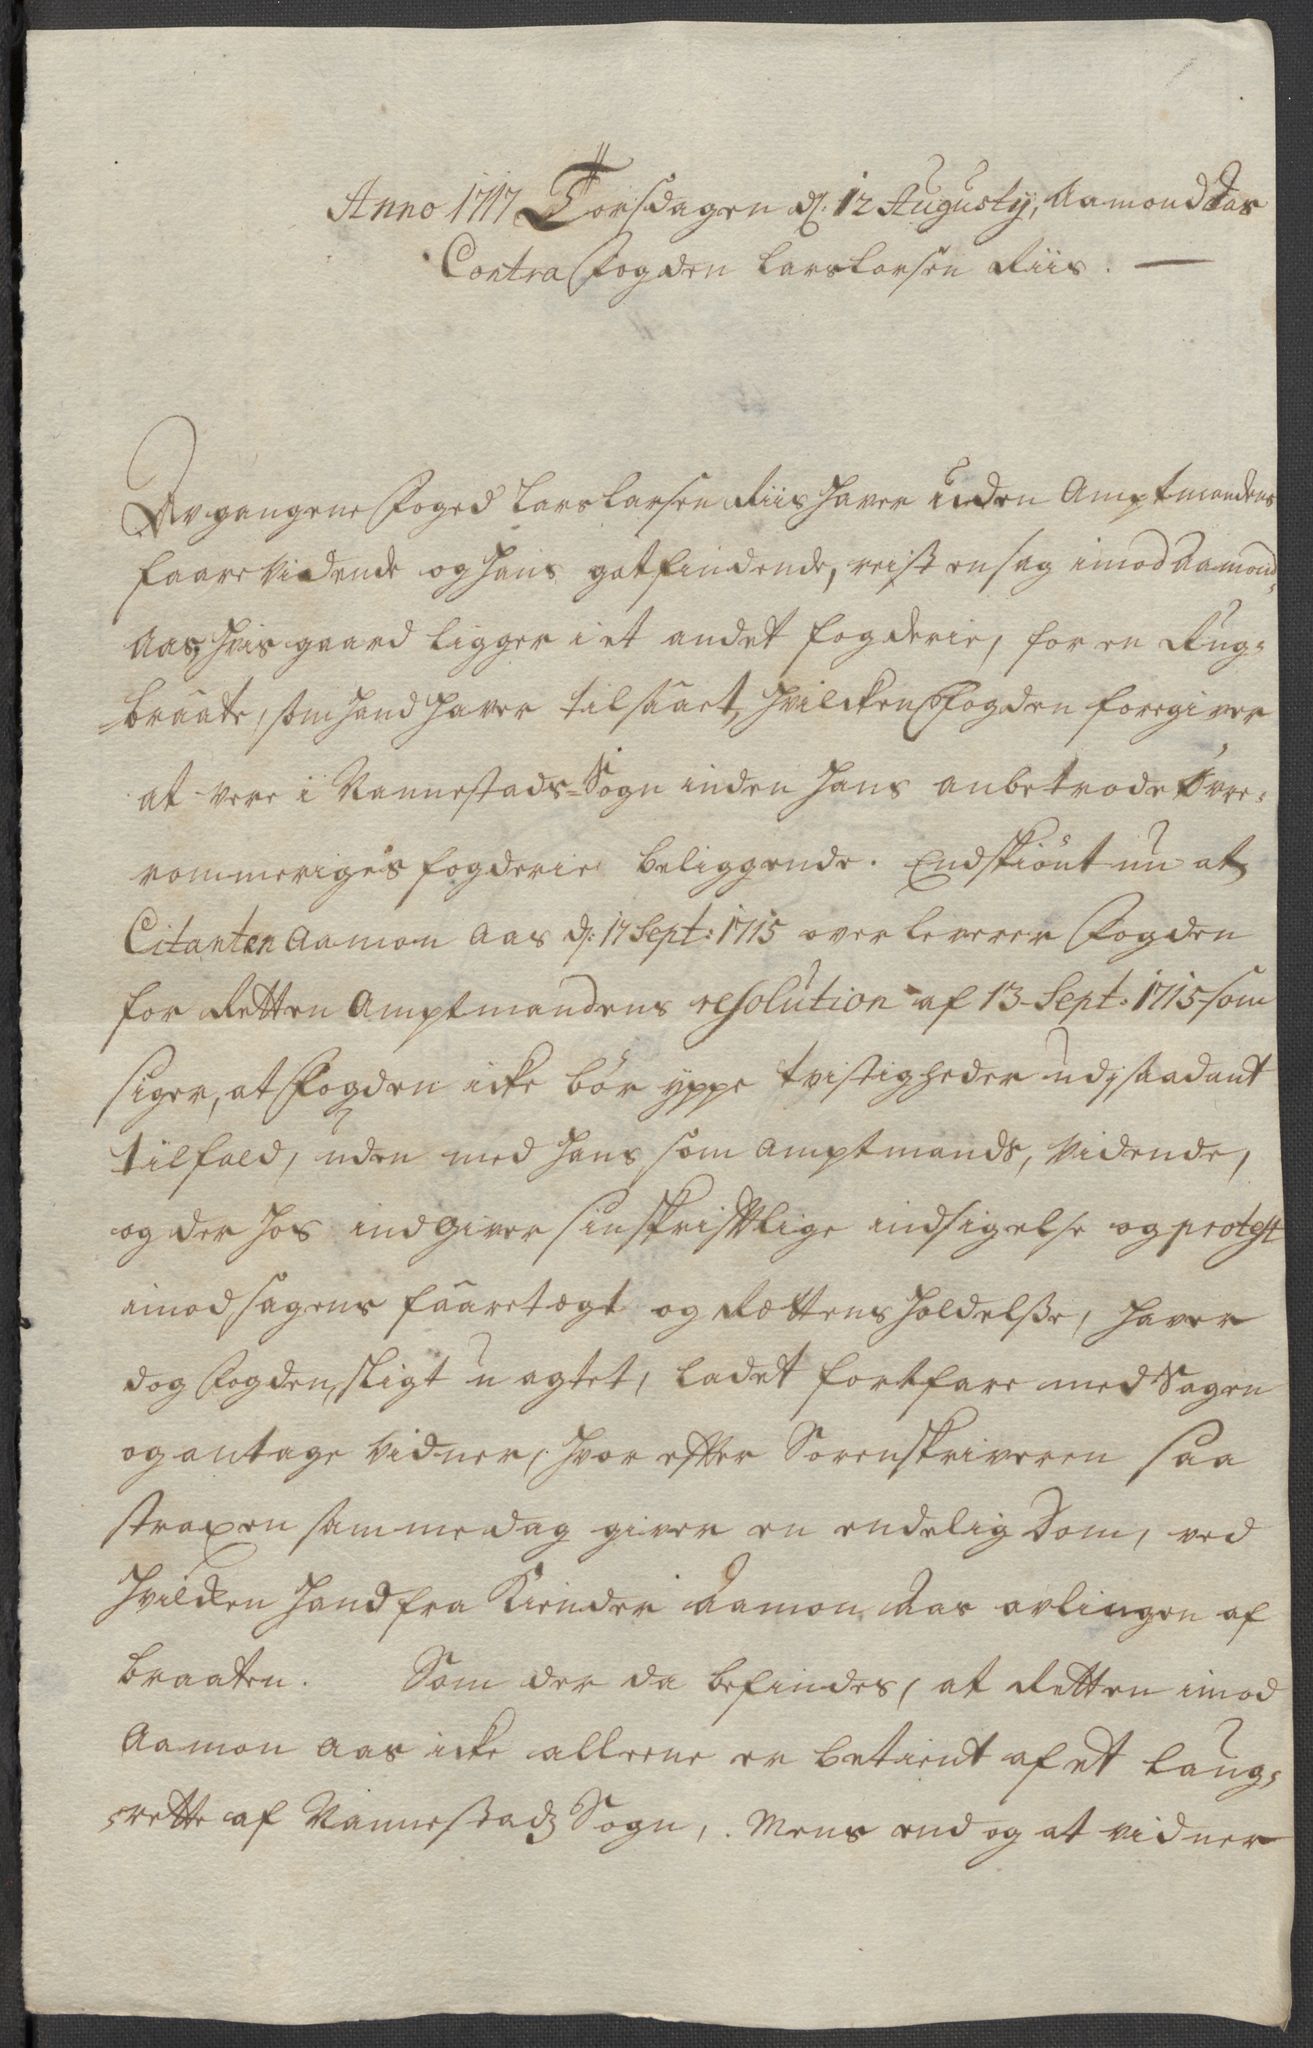 Anno 1717 Torsdagen d. 12 Augusty, Aamond Aas
Contra Fogden Lars Larsen Riis. —
Avgangene Foged Lars Larsen Riis haver uden Amptmandens
faare Vidende og hans gotfindende, reist en sag imod Aamond
Aas, hvis gaard ligger i et andet fogderie, for en Rug-
braate, som hand haver tilsaaet, hvilcken Fogden foregiver
at vere i Nannestads-Sogn inden hans anbetrode Øvre-
rommeriges fogderie beliggende. Endskiönt nu at
Citanten Aamon Aas d: 17 Sept: 1715 overleverer Fogden
for Retten Amptmandens resolution af 13 Sept: 1715 som
siger, at Fogden icke bör yppe tvistigheder udj saadant
tilfald, uden med hans som Amptmands, Vidende,
og der hos indgiver sin skrifftlige indsigelse og protest
imod sagens faaretægt og Rættens holdelsße, haver
dog Fogden, sligt uagtet, ladet fortfare med Sagen
og antage Vidner, hvor effter Sorenskriveren saa
straxen samme dag giver en endelig Dom, ved
hvilcken hand fra Kiender Aamon Aas avlingen af
braaten. Som der da befindes, at Retten imod
Aamon Aas icke alleene er betient af et laug-
rette af Nannestadz Sogn, . Mens end og at vidner